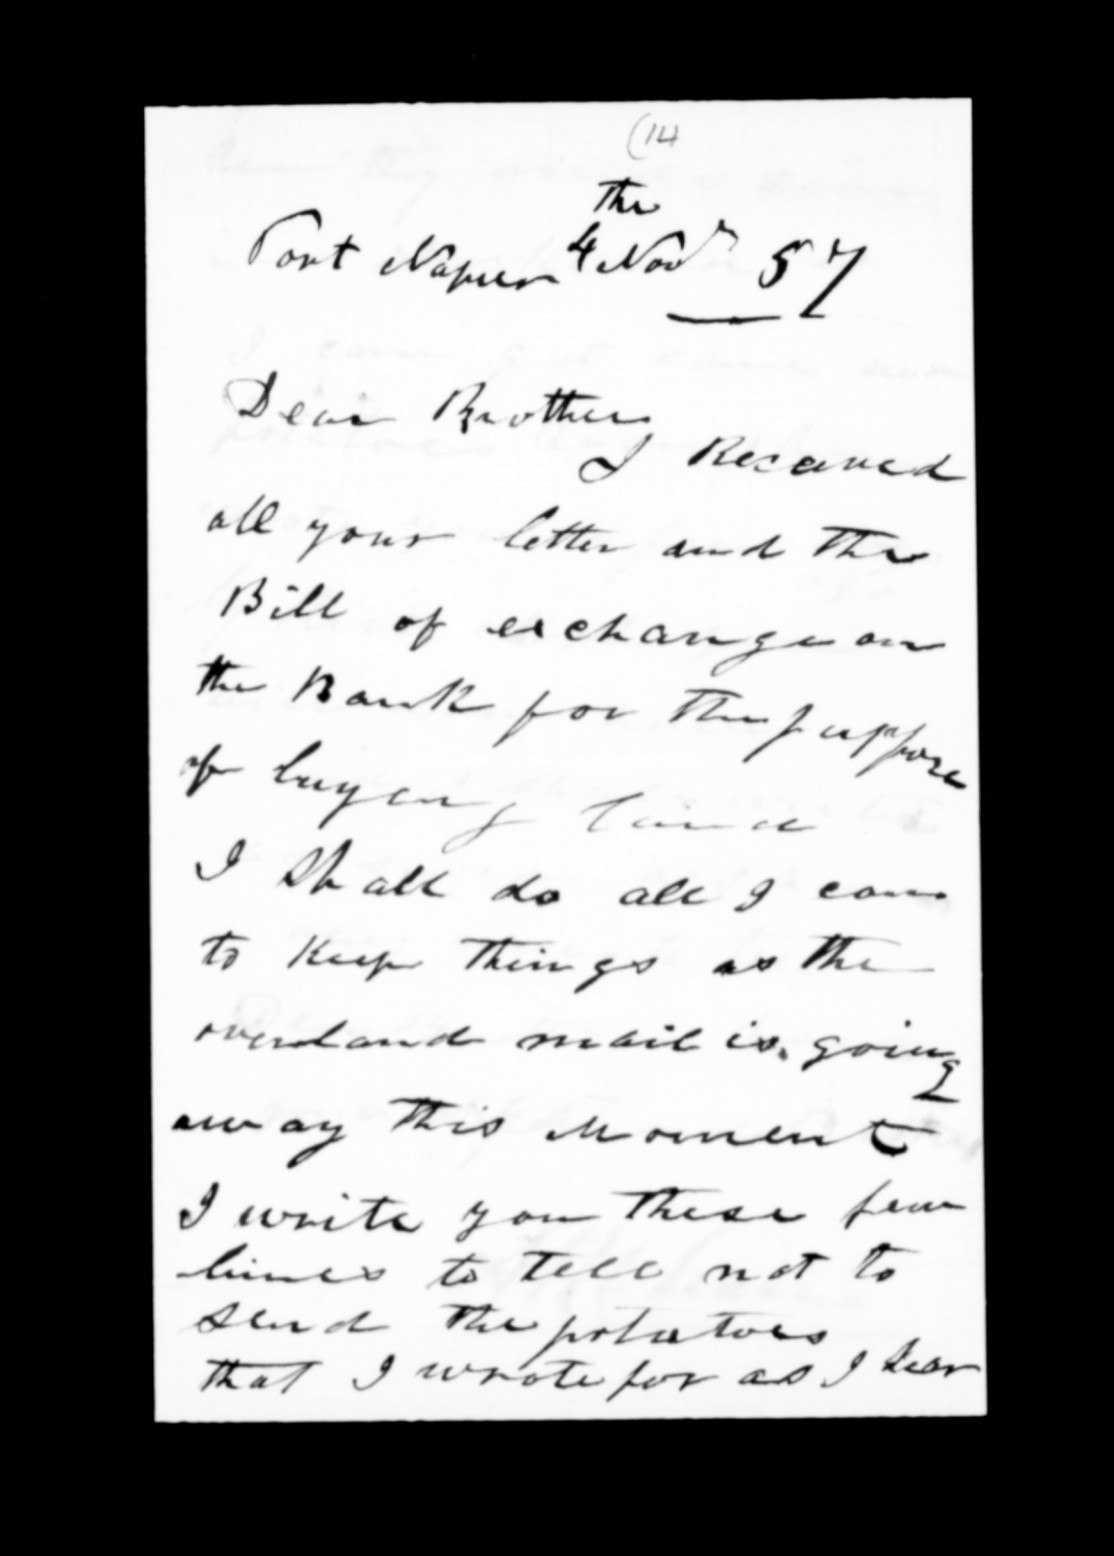 (14
the
Port Napier 4 Novr 57
Dear Brother
I Receaved
all your letter and the
Bill of exchange on
the Bank for the puppose
of buyeng land
I Shall do all I can
to Keep things as the
overland mail is going
away this Moment
I write you these few
lines to tell not to
send the potatoes
that I wrote for as I hear